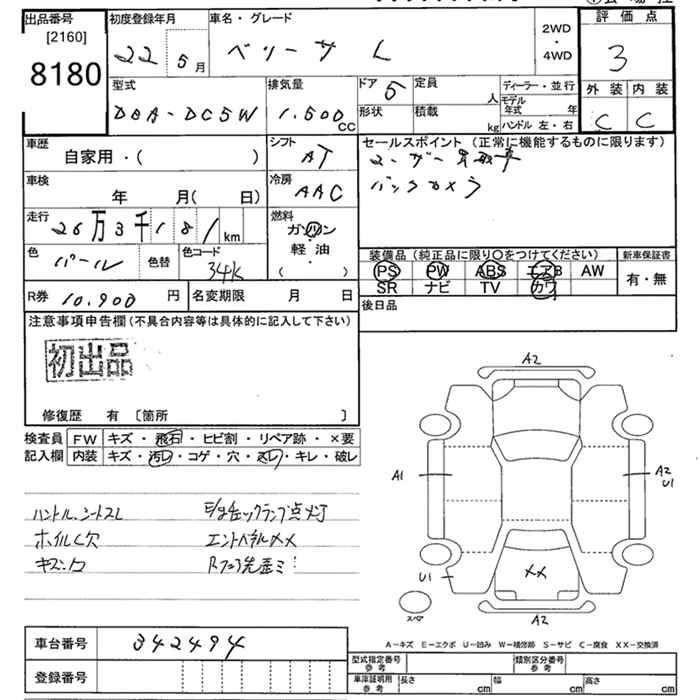 出品番号
[2160]
8180
初度登録年月
22 5月
車名・グレード
ベリーサ L
2WD
・
4WD
評価点
3
外装 内装
C C
型式
DBA-DC5W
排気量
1,500 CC
ドア 5
形状
定員 人
積載 kg
ディーラー・並行
モデル年式 年
ハンドル 左・右
車歴
自家用・( )
シフト
AT
セールスポイント(正常に機能するものに限ります)
ユーザー買取車
バックカメラ
車検
年 月( 日)
冷房
AAC
走行
26万3千181km
燃料
ガソリン
軽・油
・
( )
色
パール
色替
色コード
34K
装備品(純正品に限り〇をつけてください)
新車保証書
PS PW ABS エアB AW
SR ナビ TV カワ
有・無
R券 10,900 円
名変期限 月 日
後日品
注意事項申告欄(不具合内容等は具体的に記入して下さい)
初出品
修復歴 有 〔箇所 〕
検査員
記入欄
FW キズ・飛石・ヒビ割・リペア跡・×要
内装 キズ・汚レ・コゲ・穴・スレ・キレ・破レ
ハンドル、シートスレ
ホイル欠
エンジンチェックランプ点灯
エンドパネルXX
A2
A1
A2
U1
U1
XX
スペア
A2
A-キズ E-エクボ U-凹み W-補修跡 S-サビ C-腐食 XX-交換済
車台番号 342494
登録番号
型式指定番号
参考
類別区分番号
参考
車庫証明用
参考
長さ cm 幅 cm 高さ cm